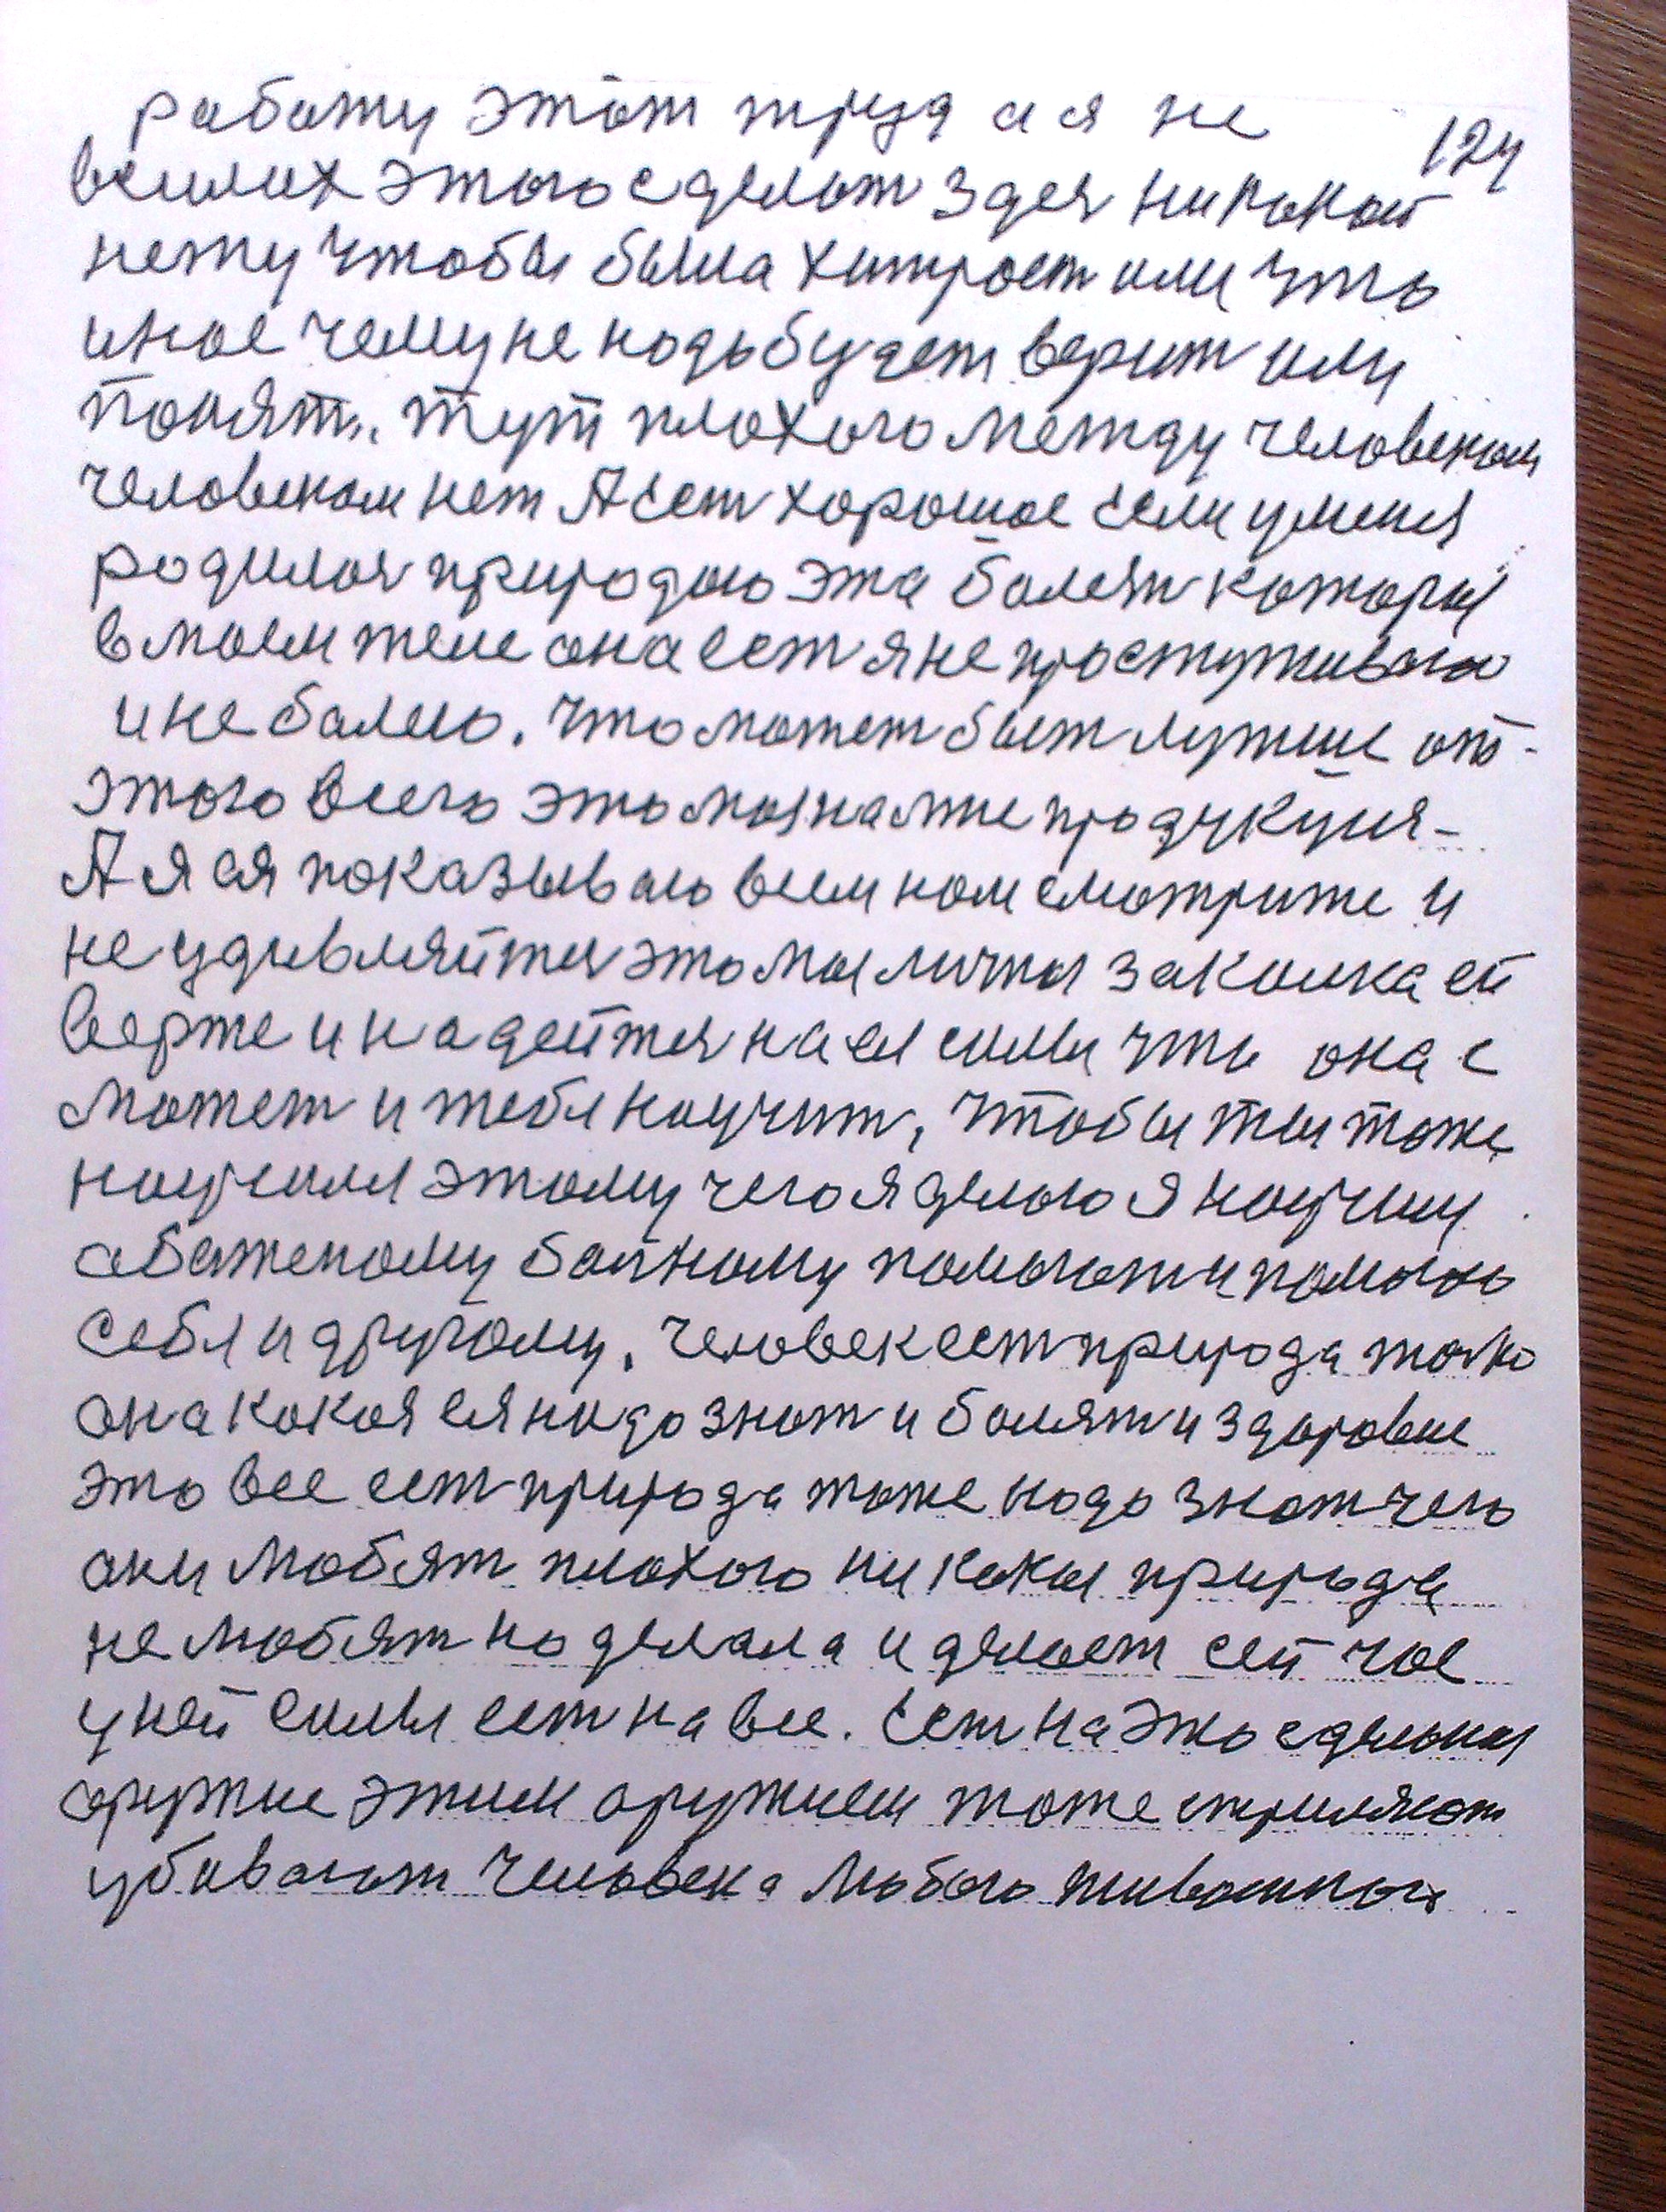 работу этот труд а я не
124
всилах этого сделат здея никакой
нету чтобы была хитрост или что
иное чему не надо будет верит или
понят. тут плохого между человеком
человеком нет А ест хорошое если умения
родилоя природою эта болезн которыя
в моем теле она ест я не простуживаю
и не болею. что может быт лутше от
этого всего это моя наме продукция
А я ея показываю всем ном смотрите и
не удивляйтея это моя личноя закалка ей
верте и надейтея на ея силы что она с
может и тебя научит, чтобы ты тоже
научился этому чего я делаю я научу
обаженому бо́лному помогат и помогаю
себя и другому. человек ест природа толко
она какоя ея надо знат и болят и здоровие
это все ест природа тоже надо знат чего
они любят плохого никакоя природа
не любят но делала и делает сей час
у ней силы ест на все. Ест на это сделаноя
оружие этим оружием тоже стриляют
убивают человека любого животноя